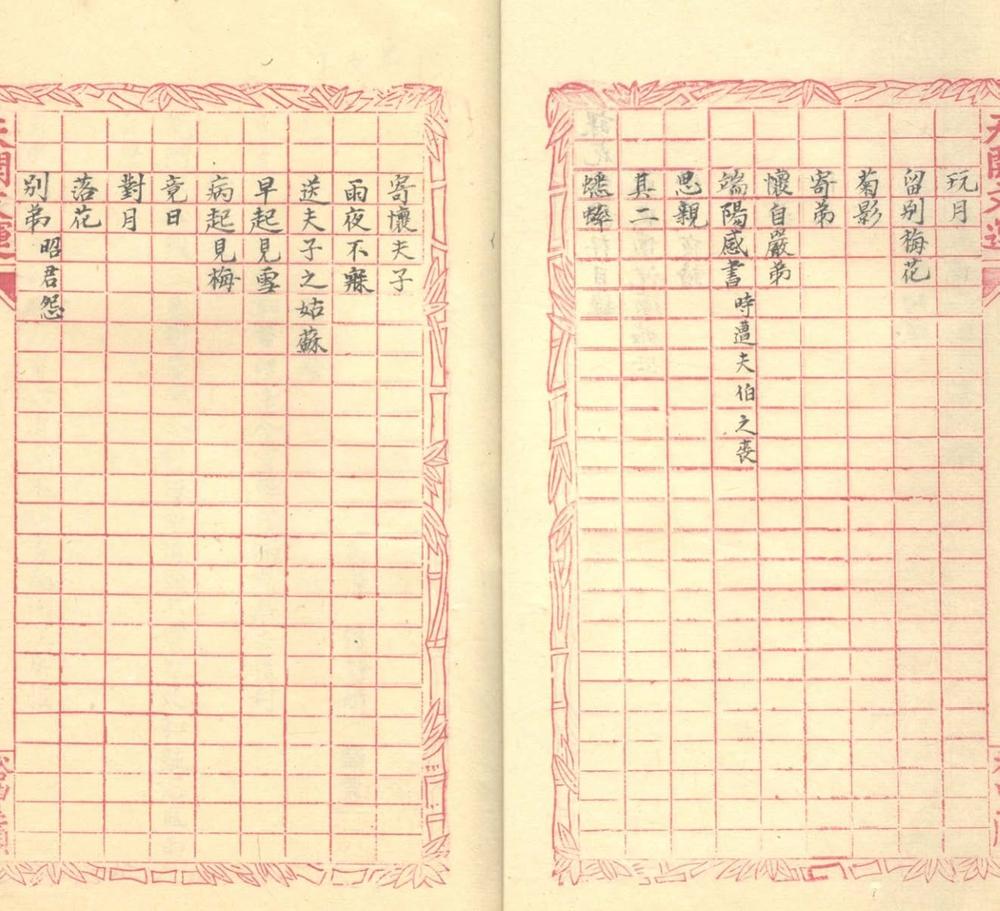 玩月
留别梅花
菊影
寄弟
懷自嚴弟
端陽感書 時遭夫伯之喪
思親
其二
蟋蟀
寄懷夫子
雨夜不寐
送夫子之姑蘇
早起見雪
病起見梅
竟日
對月
落花
别弟 昭君怨